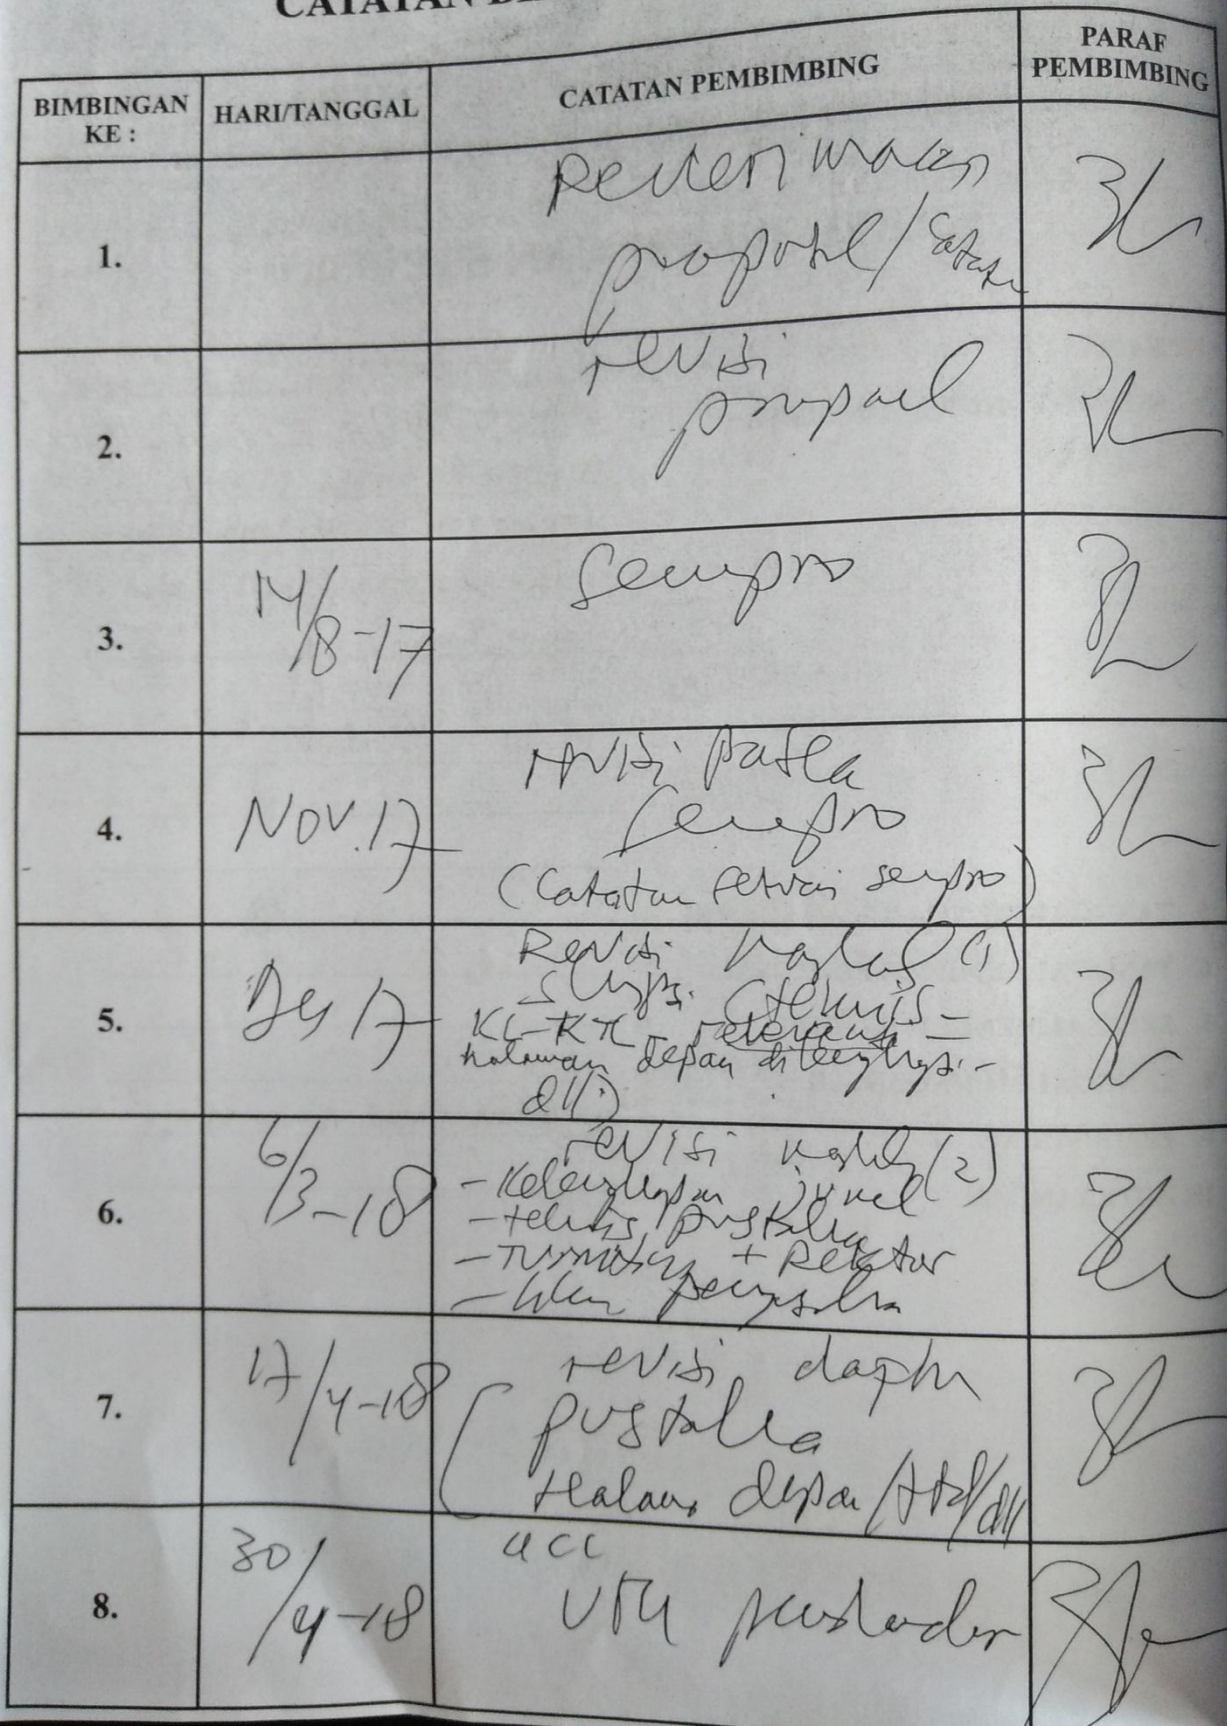 CATATAN
BIMBINGAN KE :
HARI/TANGGAL
CATATAN PEMBIMBING
PARAF PEMBIMBING
1.
Penerimaan
proposal / Catatan
2.
revisi
proposal
3.
14/8-17
Sempro
4.
Nov. 17
revisi paska
sempro
(Catatan sesuai sempro)
5.
Des 17
Revisi naskah (1)
skripsi (teknis -
relevansi -
halaman depan dilengkapi -
dll.)
6.
6/3-18
revisi naskah (2)
- Kelengkapan jurnal
- teknis pustaka
- Turnitin +
-
7.
17/4-18
revisi daftar
pustaka
Halaman depan / ttd / dll
8.
30/4-18
acc
utk pendadaran